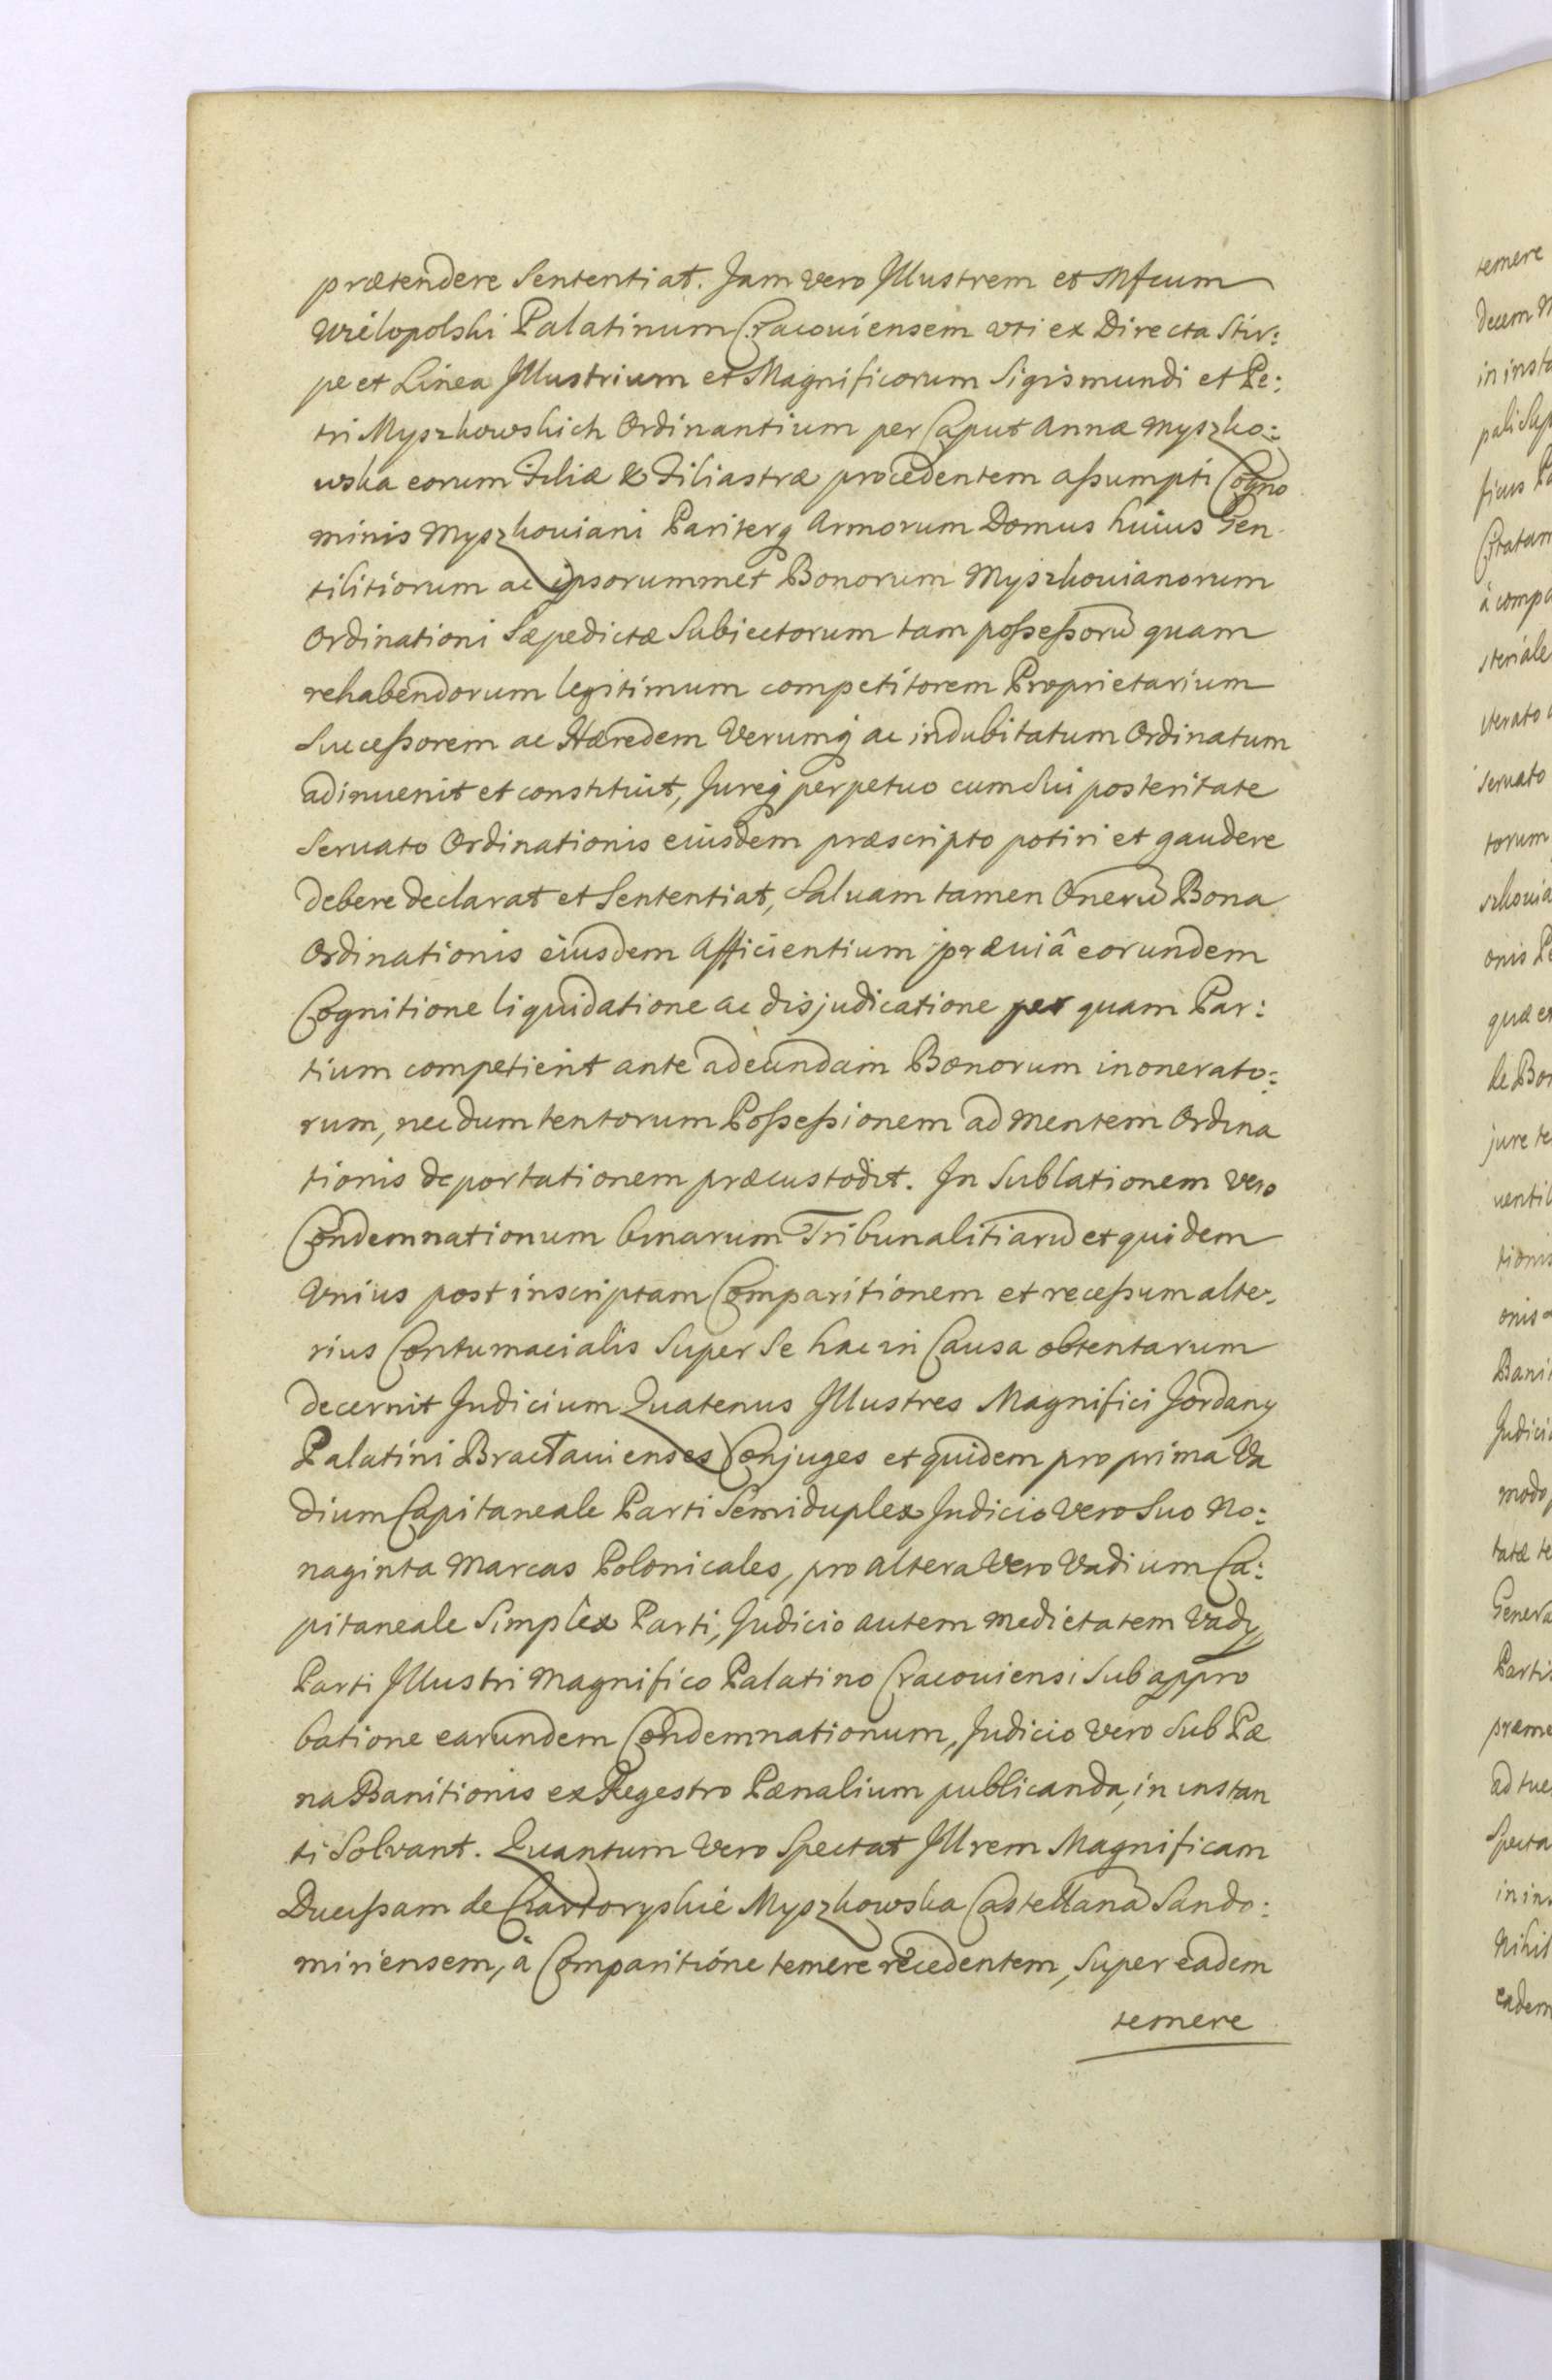 prætendere Sententiat. Jam vero Jllustrem et Mfcum
Wielopolski Palatinum Cracouiensem vti ex Directa Stir:
pe et Linea Jllustrium et Magnificorum Sigismundi et Pe:
tri Myszkowskich Ordinantium per Caput Annæ Myszko:
wska eorum Filiæ & Filiastræ procedentem assumpti Cogno
minis Myszkouiani Pariterq Armorum Domus huius Gen
tilitiorum ac ipsorummet Bonorum Myszkouianorum
Ordinationi Sæpedictæ Subiectorum tam possessorū quam
rehabendorum legitimum competitorem Proprietarium
Successorem ac Hæredem Verumq ac indubitatum Ordinatum
adinuenit et constituit, Jureq perpetuo cum Sui posteritate
Seruato Ordinationis eiusdem præscripto potiri et gaudere
debere declarat et Sententiat, Saluam tamen Onerū Bona
Ordinationis eiusdem Afficientium præuiâ eorundem
Cognitione liquidatione ac disjudicatione per quam Par:
tium competierit ante adeundam Bonorum inonerato:
rum, necdum tentorum Possessionem ad mentem Ordina
tionis deportationem præcustodit. In Sublationem vero
Condemnationum binarum Tribunalitiarū et quidem
Vnius post inscriptam Comparitionem et recessum alte-
rius Contumacialis Super Se hac in Causa obtentarum
decernit Judicium Quatenus Jllustres Magnifici Jordany
Palatini Braclauienses Conjuges et quidem pro prima Va
dium Capitaneale Parti Semiduplex Judicio vero Suo No:
naginta Marcas Polonicales, pro altera vero Vadium Ca:
pitaneale Simplex Parti, Judicio autem medietatem Vady
Parti Jllustri Magnifico Palatino Cracouiensi Sub appro
batione earundem Condemnationum, Judicio vero Sub Pæ
na Banitionis ex Regestro Pænalium publicanda, in instan
ti Solvant. Quantum vero Spectat Jllrem Magnificam
Ducissam de Czartoryskie Myszkowska Castellanā Sando:
miriensem, à Comparitione temere recedentem, Super eadem
temere